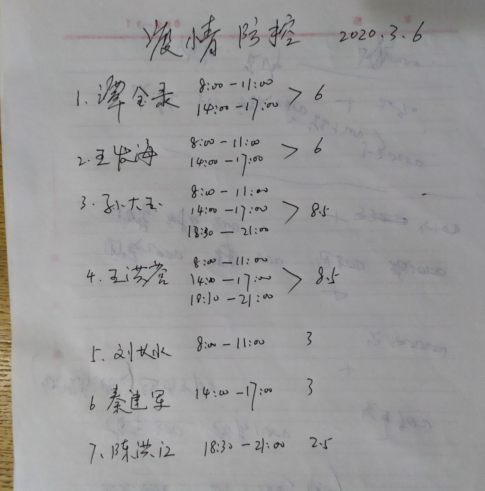 疫情防控 2020.3.6
1.谭全录 8:00-11:00
14:00-17:00 > 6
2.王发海 8:00-11:00
14:00-17:00 > 6
3.孙大玉 8:00-11:00
14:00-17:00 > 8.5
18:30-21:00
4.王洪营 8:00-11:00
14:00-17:00 > 8.5
18:30-21:00
5.刘长水 8:00-11:00 3
6 秦建军 14:00-17:00 3
7.陈洪江 18:30-21:00 2.5